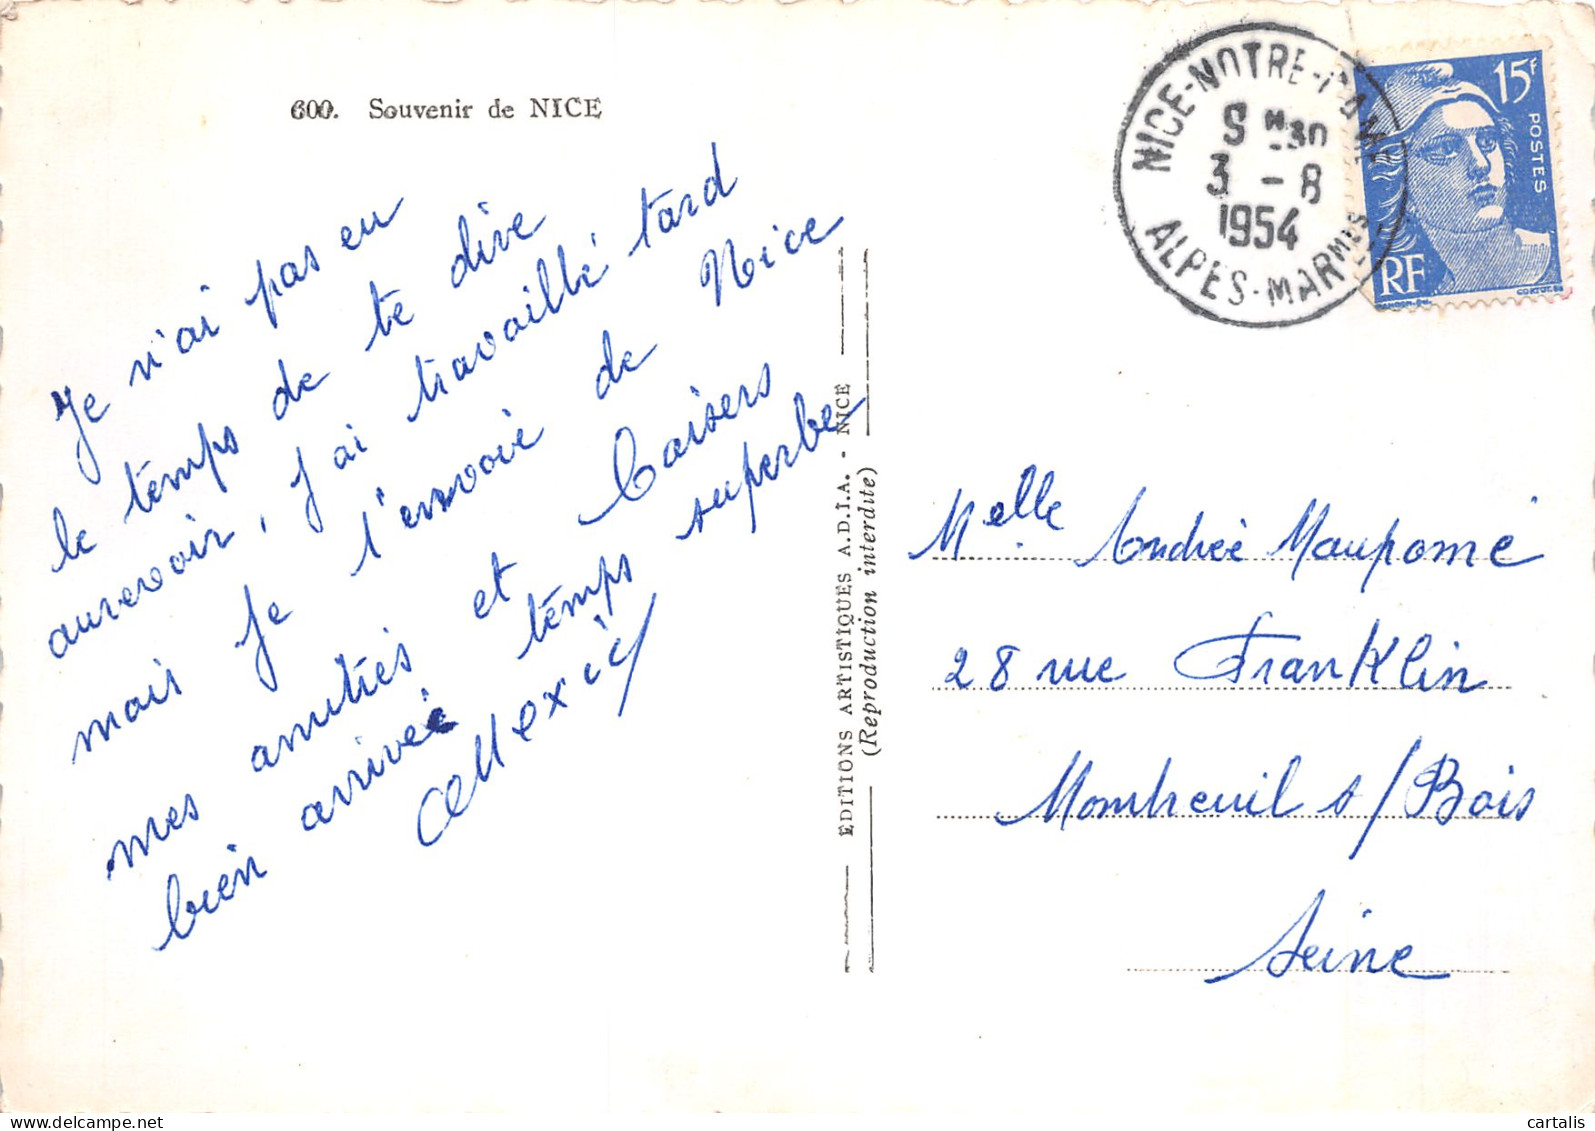 600. Souvenir de NICE
Je n'ai pas eu
le temps de te dire
aurevoir, j'ai travaillé tard
mais je t'envoie de Nice
mes amitiés et baisers
bien arrivée temps superbe
EDITIONS ARTISTIQUES A.D.I.A. - NICE
(Reproduction interdite)
NICE-NOTRE-DAME
3 - 8
1954
ALPES-MARMES
15F
POSTES
RF
Melle Andrée Maupomé
28 rue Franklin
Montreuil s/Bois
Seine
cartalis